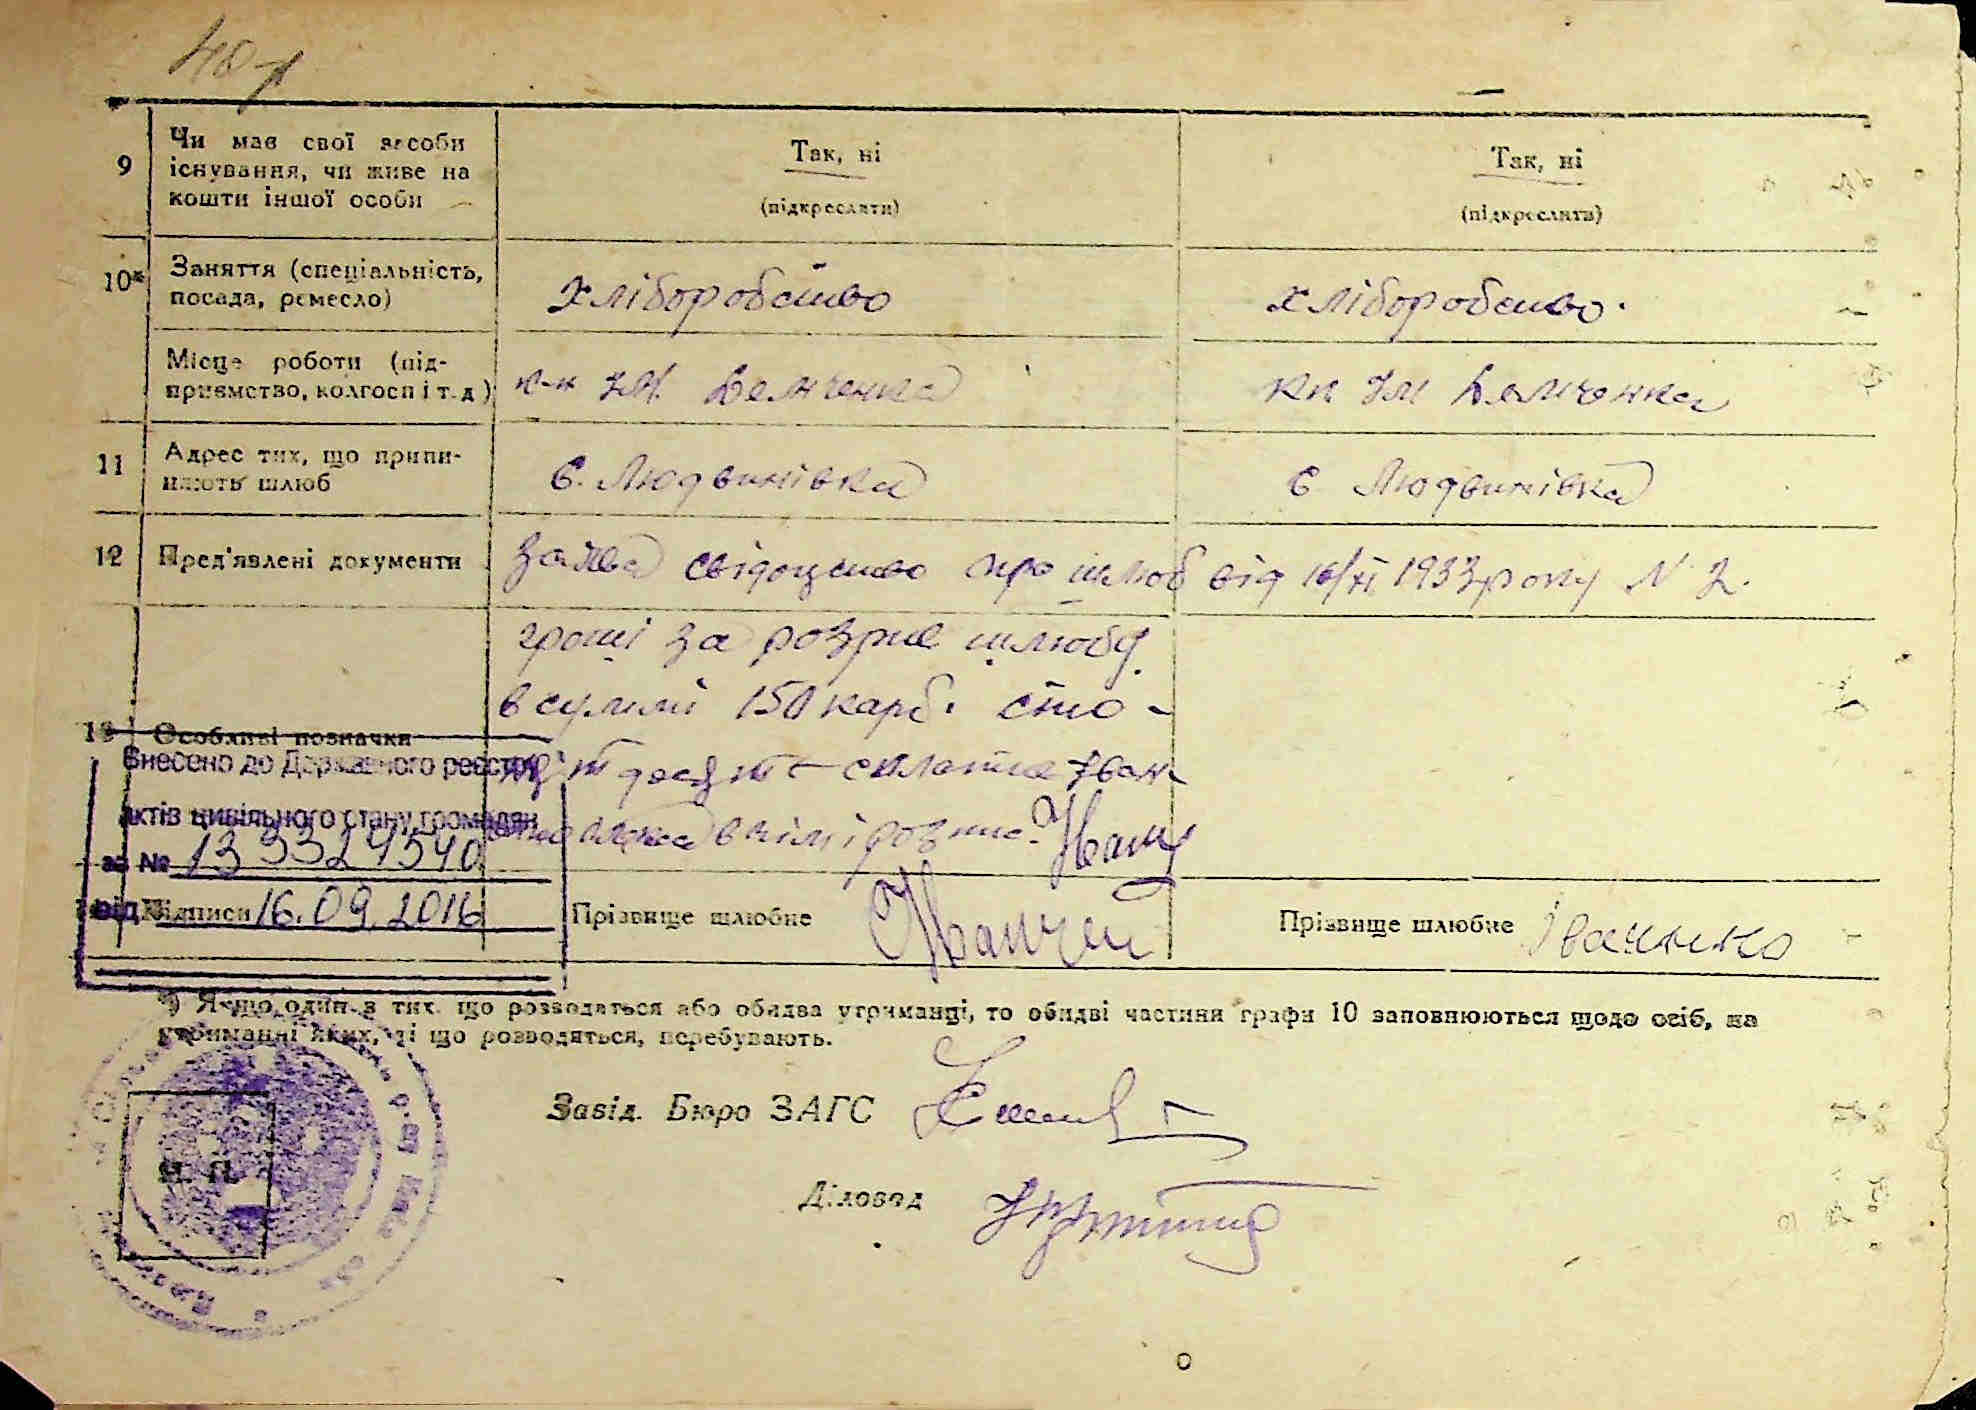 9 Чи має свої засоби існування, чи живе на кошти іншої особи
Так, ні
(підкреслити)
Так, ні
(підкреслити)
10* Заняття (спеціальність, посада, ремесло)
хліборобство
хліборобство.
Місце роботи (підприємство, колгосп і т.д)
к-к Ім. Демченка
кк Ім Демченка
11 Адрес тих, що припиняють шлюб
с. Людвинівка
с Людвинівка
12 Пред'явлені документи
Заява свідоцтво про шлюб від 16/XI 1933 року N 2.
13 Особливі позначки
гроші за розрив шлюбу
в сумми 150 карб. сто-
десят сплатив Іван
Іванч
Внесено до Державного реєстру
актів цивільного стану громадян
за № 13 33324540
від 16.09.2016
Підписи
Прізвище шлюбне
Прізвище шлюбне Іваненко
*) Якщо один з тих що розводяться або обидва утриманці, то обидві частини графи 10 заповнюються щодо осіб, на
утриманні яких, ті що розводяться, перебувають.
М. П.
Завід. Бюро ЗАГС
Діловод